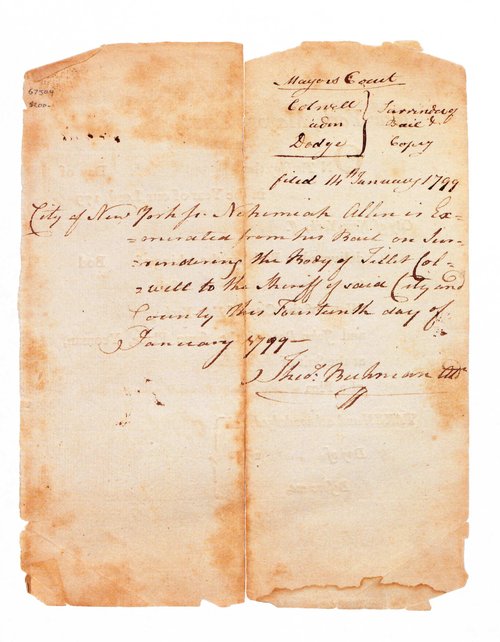 67504
$200-
Mayors Court
Colwell
adm
Dodge
Surrinder of
Bail &
Copy
filed 14th January 1799
City of New York ss. Nehemiah Allen is Ex=
=onerated from his Bail on Sur=
=rendering the Body of Tillet Col=
=well to the Sheriff of said City and
County this Fourteenth day of
January 1799-
Theo.s